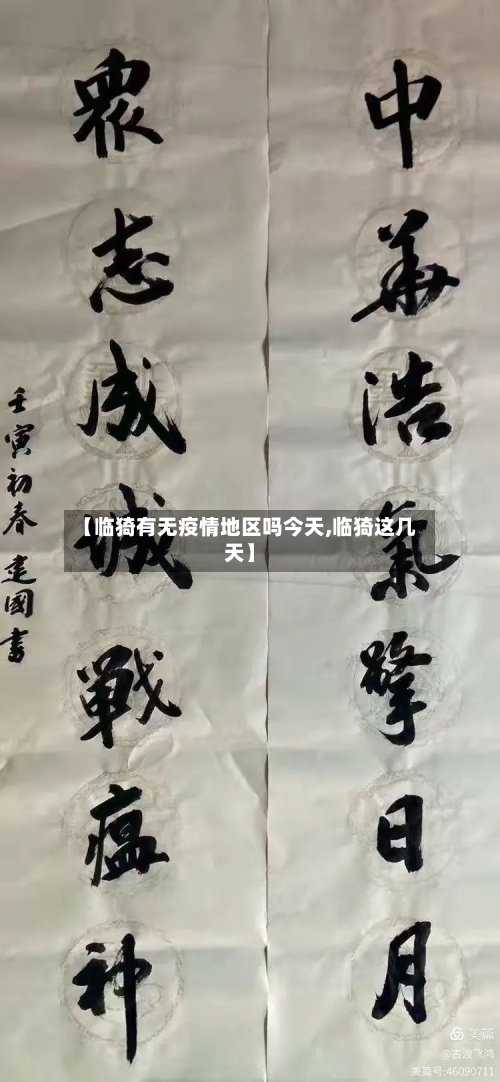 中華浩氣擎日月
衆志成城戰瘟神
壬寅初春建國書
【临猗有无疫情地区吗今天,临猗这几
天】
美篇
@古渡飞鸿
美篇号:46090711